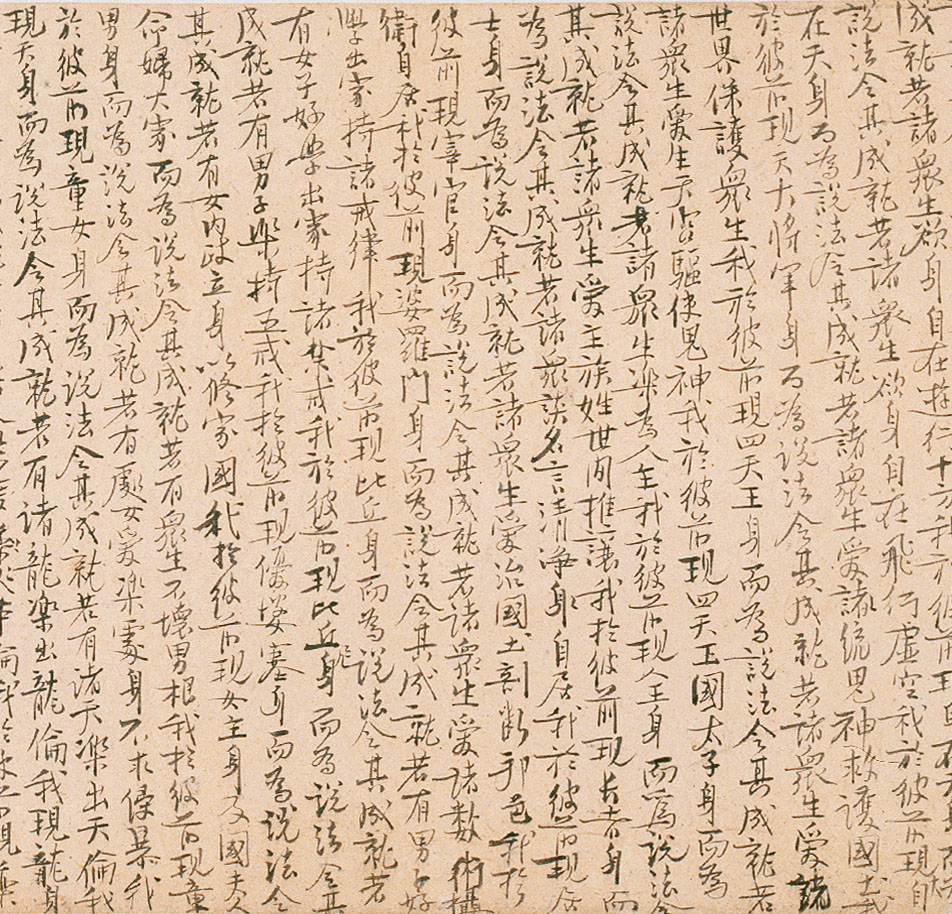 成就若諸眾生欲身自在遊行十方我於彼前現
說法令其成就若諸眾生欲身自在飛行虛空我於彼前現自
在天身而為說法令其成就若諸眾生愛統鬼神救護國土我
於彼前現天大將軍身而為說法令其成就若諸眾生愛統
世界保護眾生我於彼前現四天王身而為說法令其成就若
諸眾生愛生天宮驅使鬼神我於彼前現四天王國太子身而為
說法令其成就若諸眾生樂為人主我於彼前現人主身而為說法令
其成就若諸眾生愛主族姓世間推讓我於彼前現長者身而
為說法令其成就若諸眾生談名言清淨自居我於彼前現居
士身而為說法令其成就若諸眾生愛治國土剖斷邦邑我於
彼前現宰官身而為說法令其成就若諸眾生愛諸數術攝
衛自居我於彼前現婆羅門身而為說法令其成就若有男子好
學出家持諸戒律我於彼前現比丘身而為說法令其成就若
有女子好學出家持諸禁戒我於彼前現比丘尼身而為說法令其
成就若有男子樂持五戒我於彼前現優婆塞身而為說法令
其成就若有女內政立身以修家國我於彼前現女主身及國夫人
命婦大家而為說法令其成就若有眾生不壞男根我於彼前現童
男身而為說法令其成就若有處女愛樂處身不求侵暴我
於彼前現童女身而為說法令其成就若有諸天樂出天倫我
現天身而為說法令其成就若有諸龍樂出龍倫我現龍身